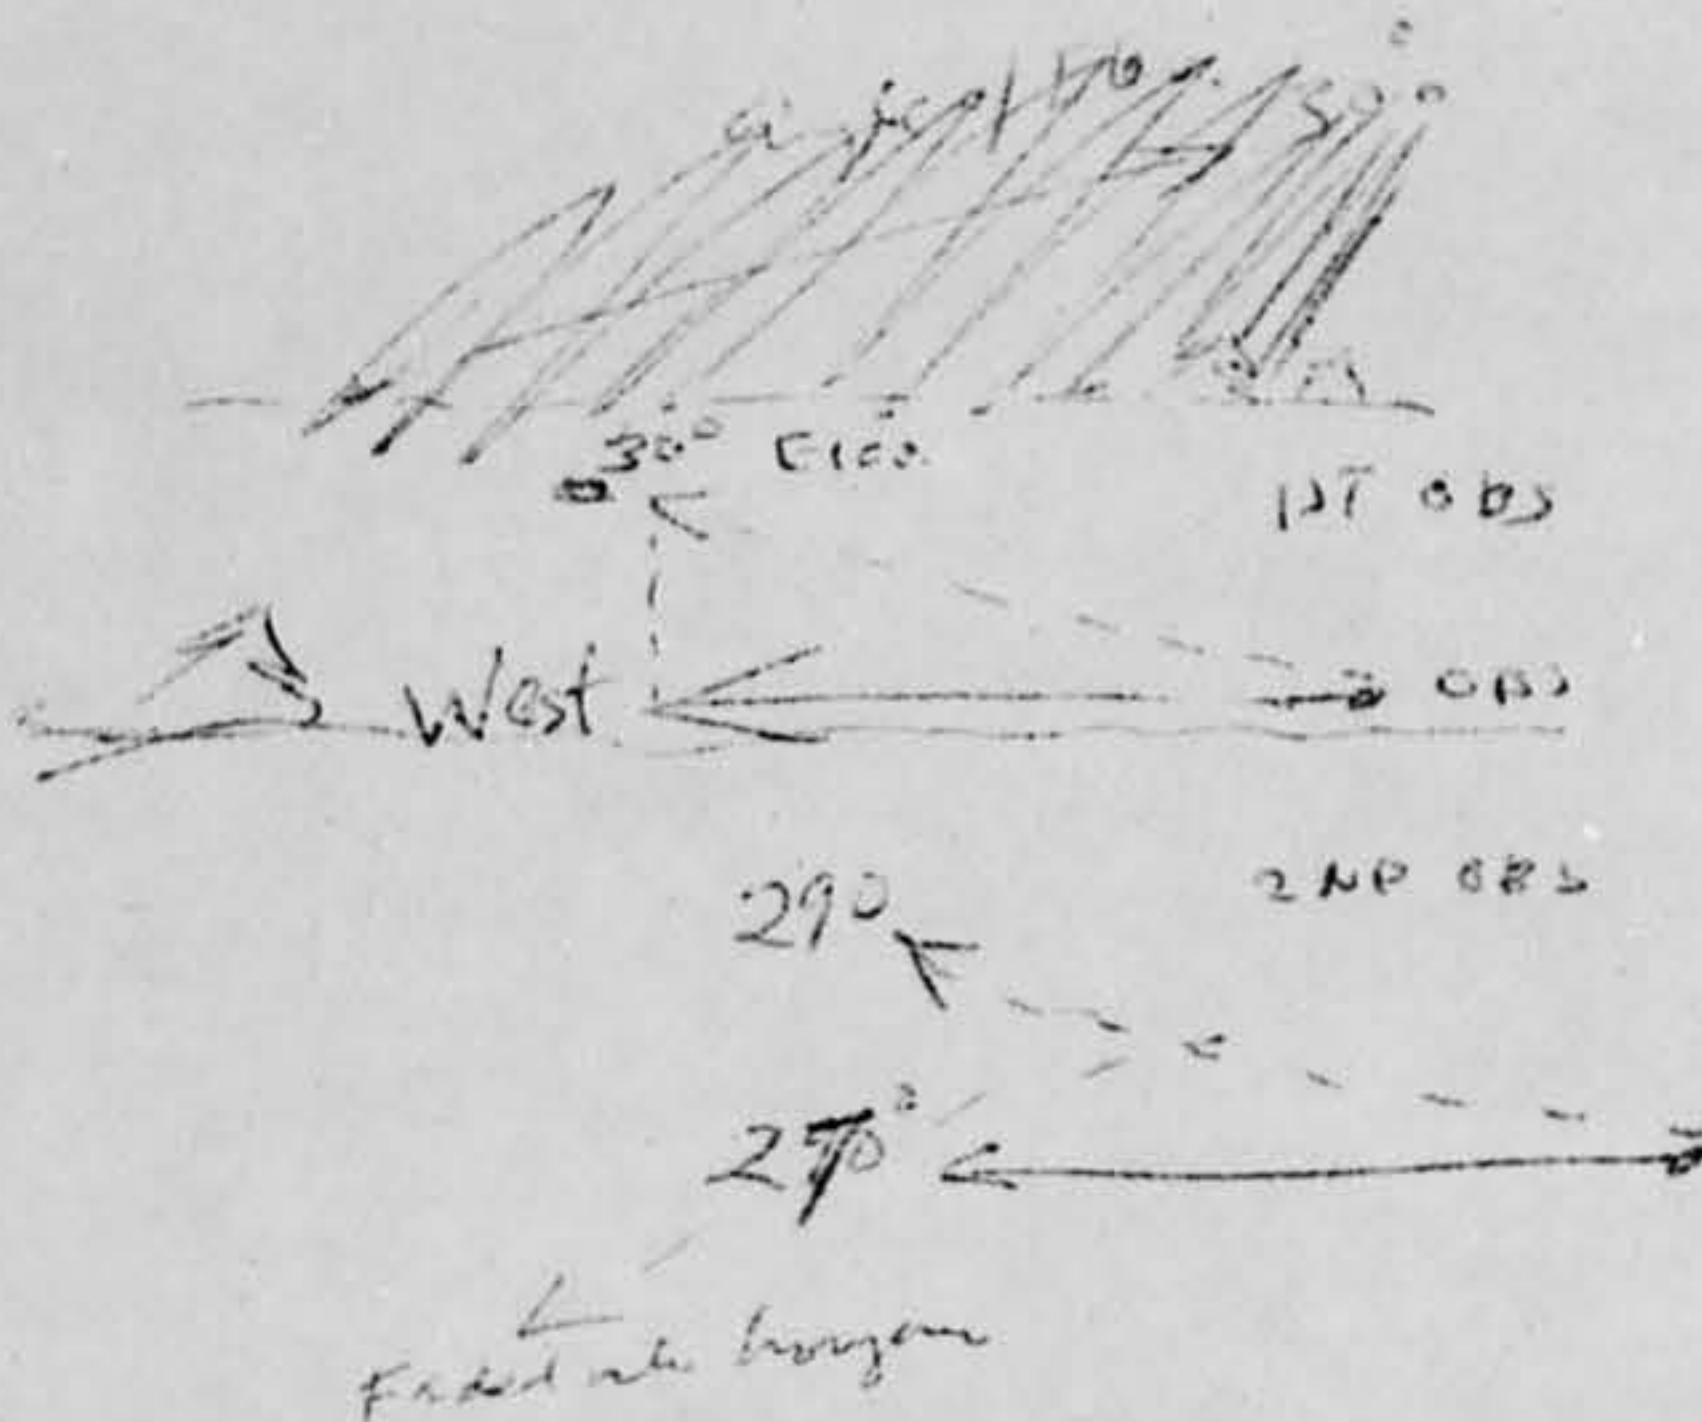 30° Elev.
1ST OBS
West
OBS
2ND OBS
290
270°
Faded into horizon